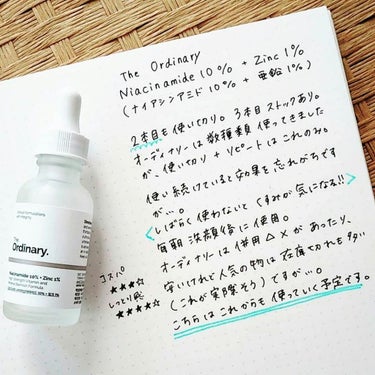 The Ordinary
Niacinamide 10% + Zinc 1%
(ナイアシンアミド 10% + 亜鉛 1%)
2本目も使い切り。3本目ストックあり。
オーディナリーは数種類使ってきました
が、使い切り + リピートはこれのみ。
使い続けていると効果を忘れがちです
が…。
しばらく使わないとくすみが気になる!!
毎朝洗顔後に使用。
オーディナリーは併用△×があったり、
安いけれど人気の物は在庫切れも多い
(これが実際そう)ですが…。
こちらはこれからも使っていく予定です。
コスパ
★★★☆
しっとり感
★★★★☆
The
Ordinary.
Niacinamide 10% + Zinc 1%